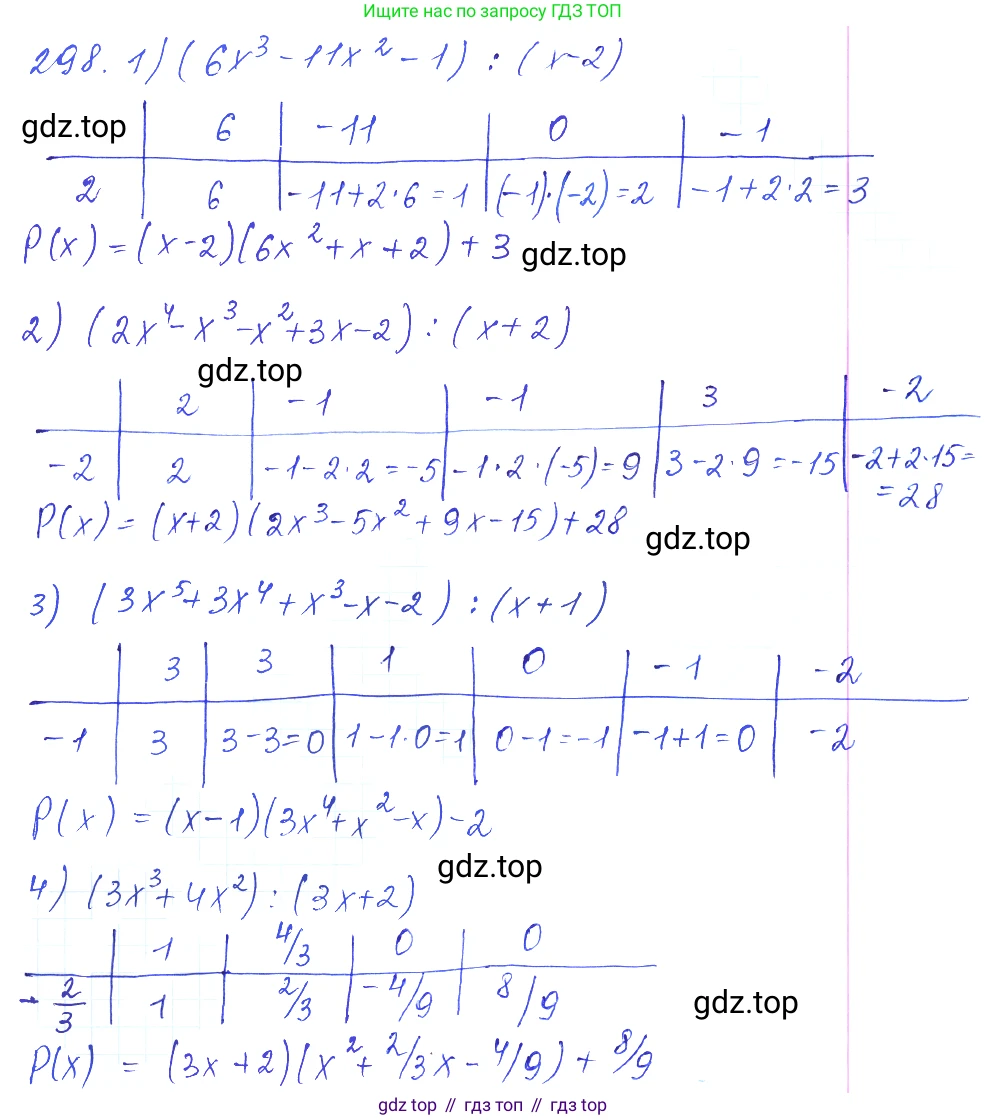 Ищите нас по запросу ГДЗ ТОП
298. 1) (6x³ - 11x² - 1) : (x-2)
gdz.top
6 | -11 | 0 | -1
2 | 6 | -11+2·6=1 | (-1)·(-2)=2 | -1+2·2=3
P(x) = (x-2)(6x²+x+2)+3
gdz.top
2) (2x⁴-x³-x²+3x-2) : (x+2)
gdz.top
2 | -1 | -1 | 3 | -2
-2 | 2 | -1-2·2=-5 | -1·2·(-5)=9 | 3-2·9=-15 | -2+2·15=
=28
P(x) = (x+2)(2x³-5x²+9x-15)+28
gdz.top
3) (3x⁵+3x⁴+x³-x-2) : (x+1)
3 | 3 | 1 | 0 | -1 | -2
-1 | 3 | 3-3=0 | 1-1·0=1 | 0-1=-1 | -1+1=0 | -2
P(x) = (x-1)(3x⁴+x²-x)-2
gdz.top
4) (3x³+4x²) : (3x+2)
1 | 4/3 | 0 | 0
-2/3 | 1 | 2/3 | -4/9 | 8/9
gdz.top
P(x) = (3x+2)(x²+2/3x-4/9)+8/9
gdz top // гдз топ // gdz top